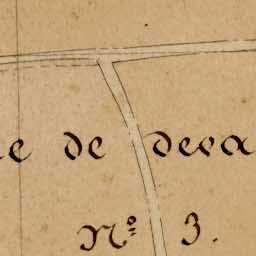 de deva
Nº 3.